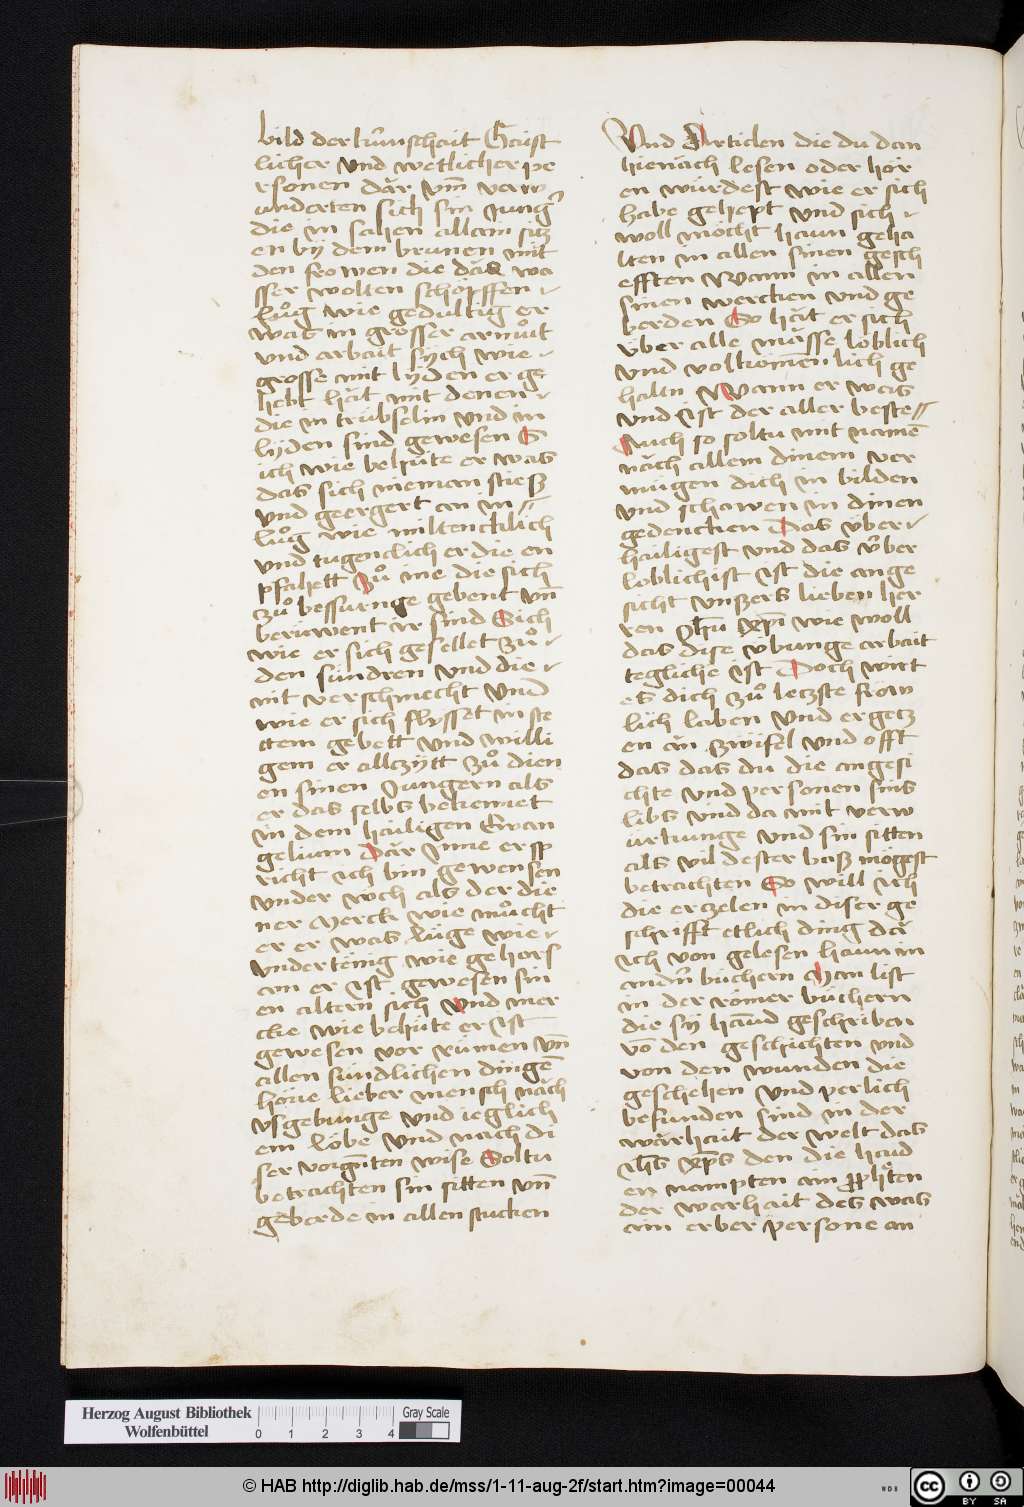 bild der kůnschait Gaist
licher vnd weltlicher pe
rsonen där vm̄ verw
anderten sich sin Jung̕
die in sahen allain sitz
en bÿ dem brunen mit
den frowen die däs wa
sser wolten schöpffen
lůg wie gedultig er
was in grosser armůit
vnd arbait sÿch wie
grosse mit lÿden er ge
hebt hät mit denen
die in trübselin vnd in
lÿden sind gewesen S
ich wie behüte er was
das sich nieman stieß
vnd geergert an in
lůg wie miltencklich
vnd tugenclich er die en
pfahett zů ine die sich
zů bessrunge gebent vn̄
berüwent ir sind Sich
wie er sich gesellet zů
den sündren vnd die
nit verschmecht vnd
wie er sich flÿsset in ste
ctem gebett vnd willi
gem er allczÿtt zů dien
en sinen Jungern als
er das selbs bekennet
in dem hailigen Ewan
gelium där Jnne er sp
richt ich bin gewensen
vnder ẃch als der die
ner Merck wie můcht
er er was lüge wie
vndertënig wie gehors
am er ist gewesen sin
en altern sich vnd mer
cke wie behüte er ist
gewesen vor rümen vn̄
allen sündlichen dingē
höre lieber mensch näch
vsgebunge vnd ieglich
em löbe vnd nach di
ser vorgn̄ten wise Soltu
betrachten sin sitten vn̄
geberde in allen stucken
Vnd Articlen die du dan
hienäch lesen oder hör
en würdest wie er sich
habe gehept vnd sich
woll möcht haun geha
lten in allen sinen gesch
efften Wann in allen
sinen wercken vnd ge
berden So hät er sich
über alle mässe löblich
vnd volkomēn lich ge
haltn Wann er was
vnd ist der aller beste
Auch so soltu mit namē
näch allem dinem ver
mügen dich in bilden
vnd schawen in dinen
gedencken Das über
hailigest vnd das über
loblichist ist die ange
sicht vnßers lieben her
ren Jh̄u xp̄i wie woll
das dise v̈bunge arbait
tegliche ist Doch wirt
es dich zů leczste fröw
lich laben vnd ergetz
en än zwifel vnd offt
das das du die angesi
chte vnd personen sins
libs vnd da mit verw
ürkunge vnd sin sitten
als vil dester baß mögest
betrachten So will ich
die erczelen in diser ge
schrifft etlich ding dä
ich von gelesen haun in
andn̄ büchern Man list
in der römer büchern
die sÿ haund geschriben
vō den geschichten vnd
von den wunden die
geschehen vnd perlich
befunden sind in der
wärhait der welt das
ih̄s xp̄s den die haid
en nampten ain p̄phëten
der warhait des was
ain erber persone an
Herzog August Bibliothek
Wolfenbüttel
0 1 2 3 4
Gray Scale
© HAB http://diglib.hab.de/mss/1-11-aug-2f/start.htm?image=00044
WDB
cc BY SA